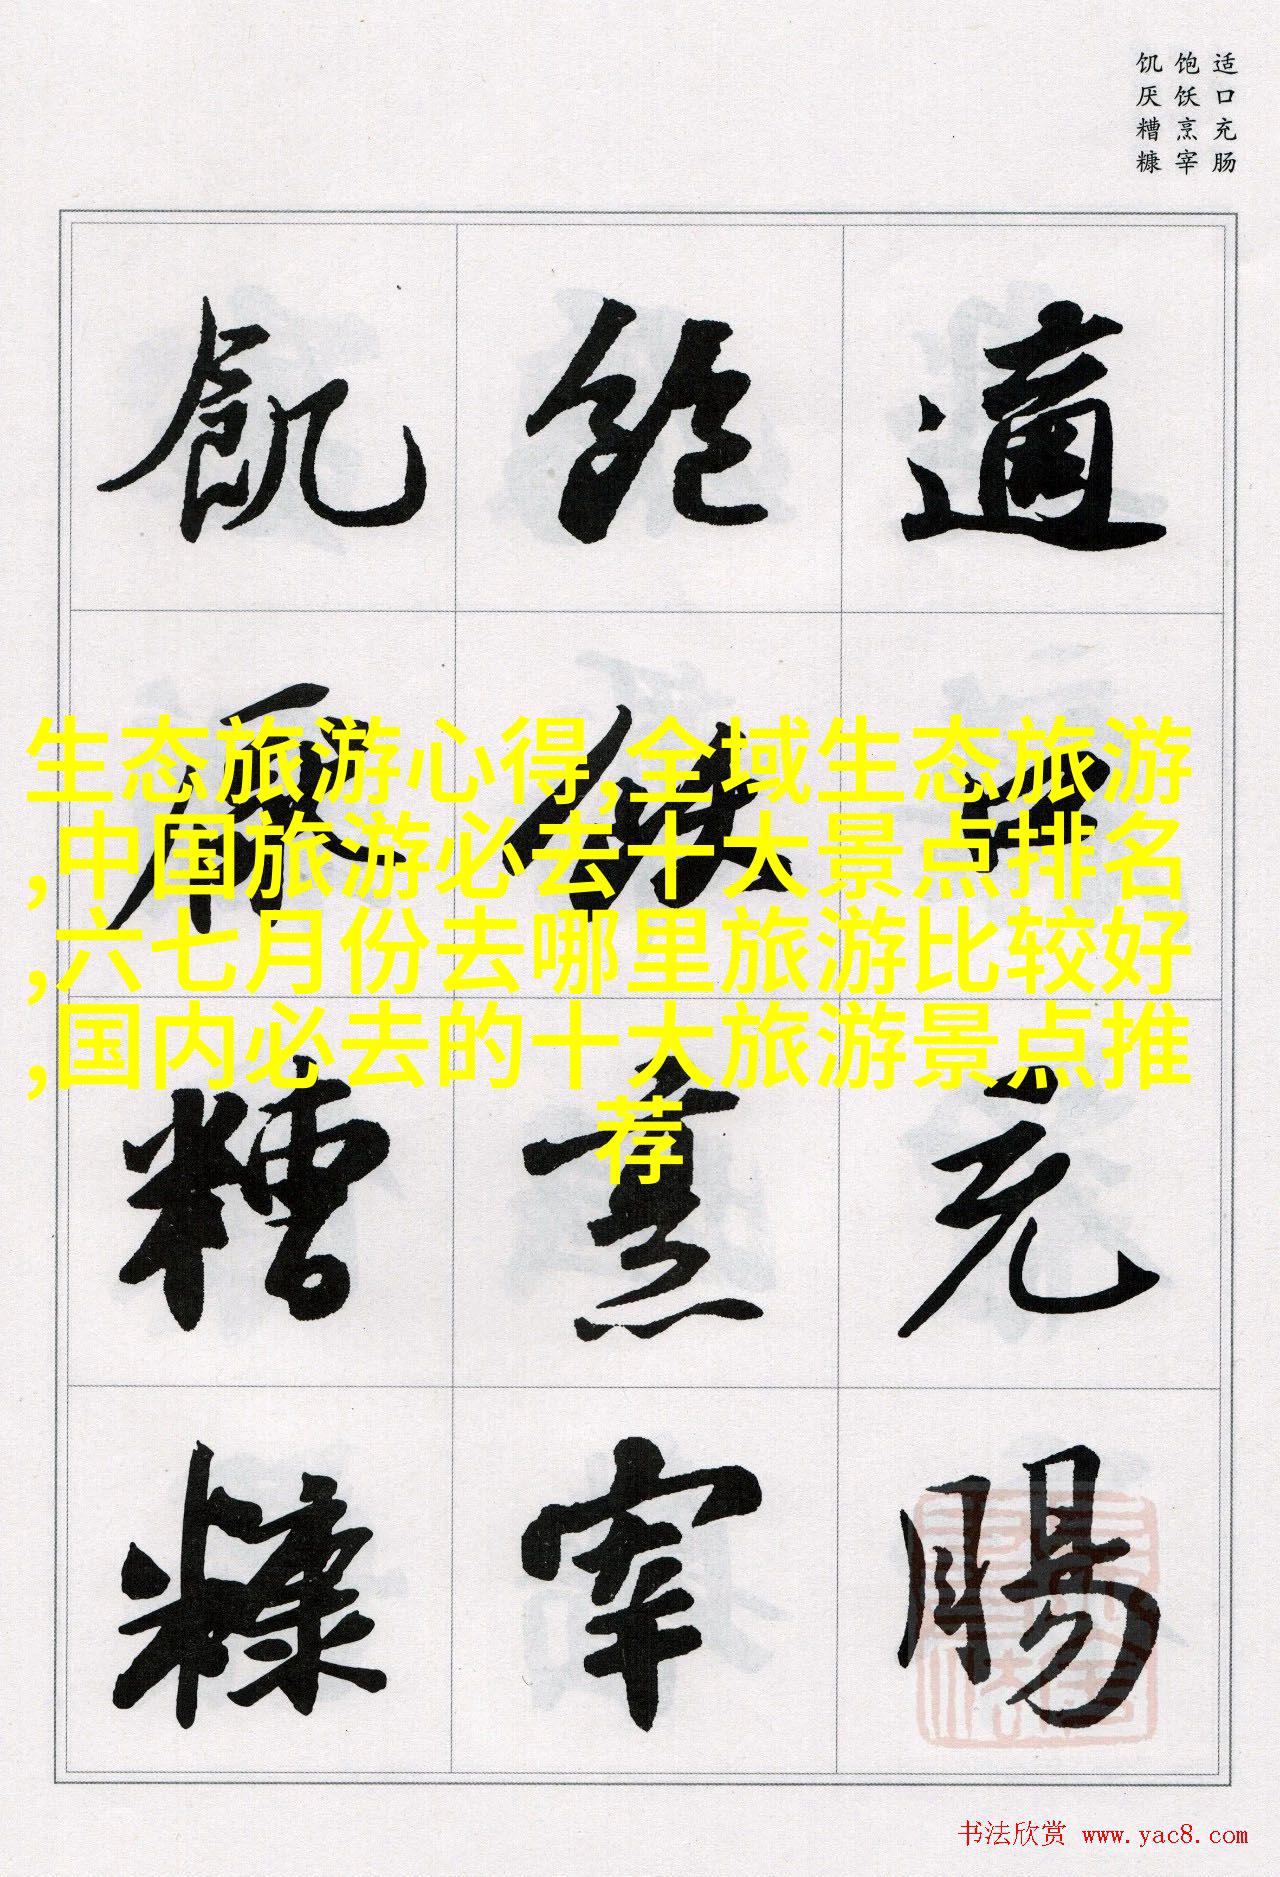 适口充肠
饱饫烹宰
饥厌糟糠
適口充腸
飽飫烹宰
飢厭糟糠
生态旅游心得,全域生态旅游
,中国旅游必去十大景点排名
,六七月份去哪里旅游比较好
,国内必去的十大旅游景点推
荐
书法欣赏 www.yac8.com